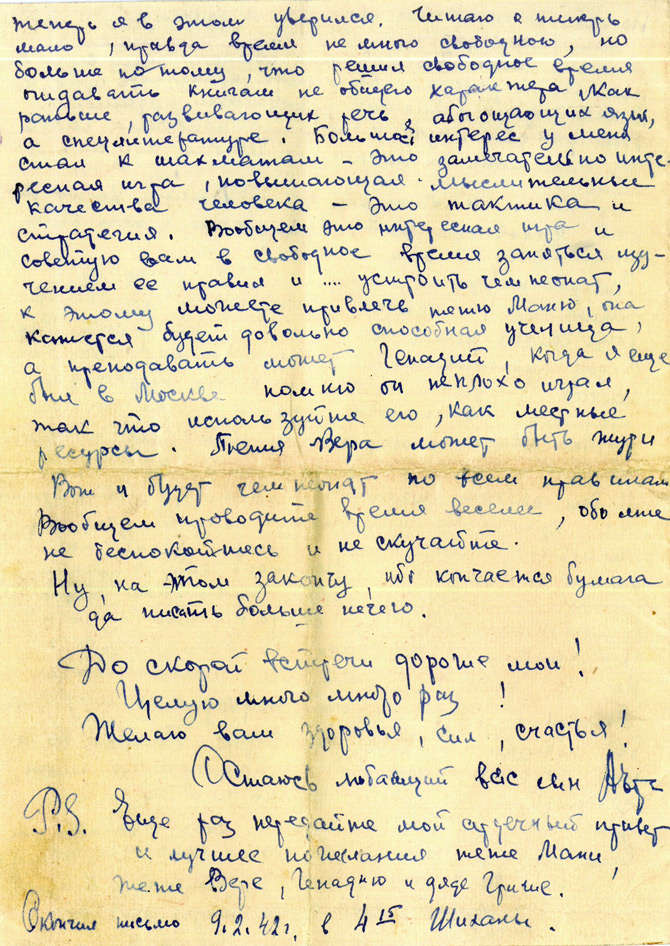 теперь я в этом уверился. Читаю я теперь
мало, правда время не много свободною, но
больше по тому, что решил свободное время
отдавать книгам не общего характера, как
раньше, развивающих речь, обогощающих язык,
а спецлитературе. Большой интерес у меня
стал к шахматам – это замечательно инте-
ресная игра, повышающая мыслительные
качества человека – это тактика и
стратегия. Вообщем это интересная игра и
советую вам в свободное время заняться изу-
чением ее правил и .... устроить чемпеонат,
к этому можете привлечь тетю Маню, она
кажется будет довольно способная ученица,
а преподавать может Генадий, когда я еще
был в Москве помню он неплохо играл,
так что используйте его, как местные
ресурсы. Тетя Вера может быть жури
Вот и будет чемпеонат по всем правилам
Вообщем проводите время веселее, обо мне
не беспокойтесь и не скучайте.
Ну, на этом закончу, ибо кончается бумага
да писать больше нечего.
До скорой встречи дорогие мои!
Целую много много раз!
Желаю вам здоровья, сил, счастья!
Остаюсь любящий вас сын
P.S. Еще раз передайте мой сердечный привет
и лучшее пожелания тете Мани,
тете Вере, Генадию и дяде Грише.
Окончил письмо 9.2.42г. в 4 15 Шиханы.